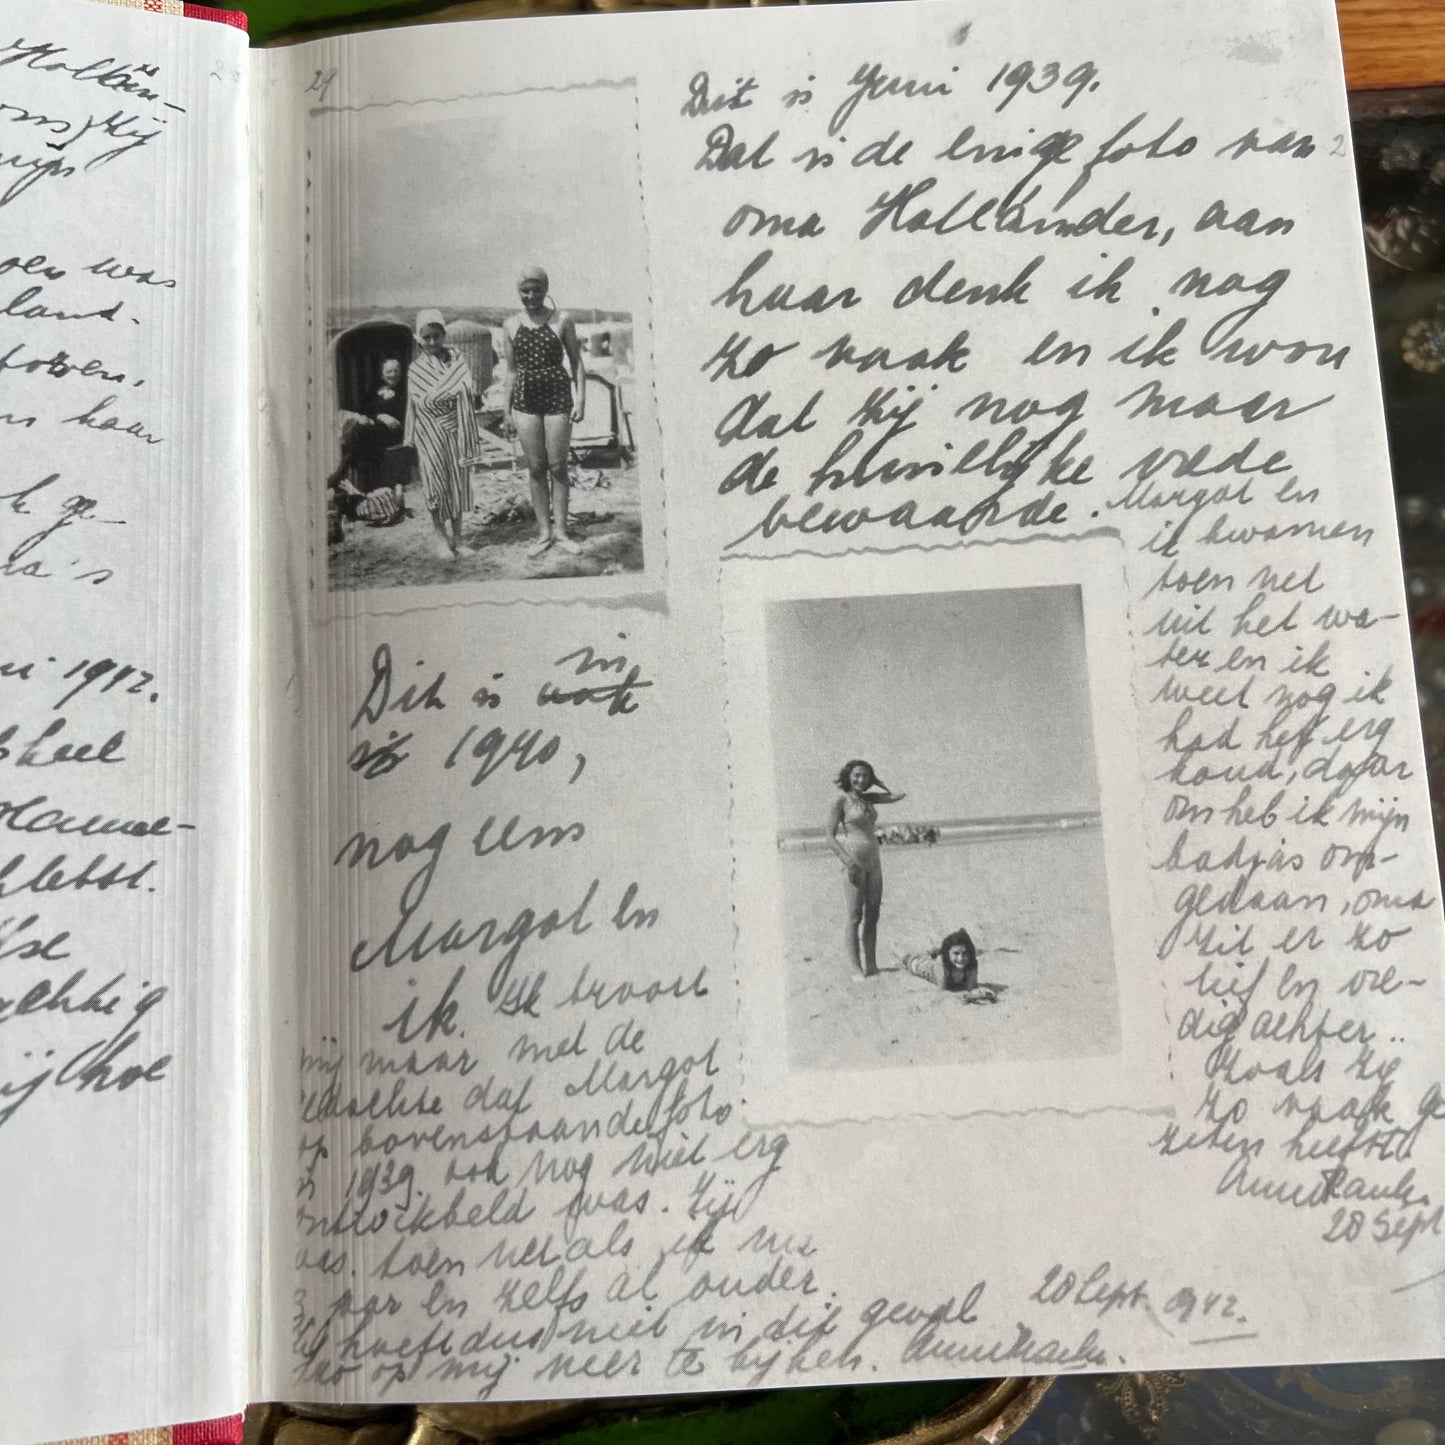 Hollän-
ons) zij
oen was
land.
haar
ge-
a's
ni 1942.
heel
Hanne-
hij hoe
29
Dit is Yuni 1939.
Dat is de enige foto van
oma Holländer, aan
haar denk ik nog
zo vaak en ik wou
dat zij nog maar
de huiselijke vrede
bewaarde. Margot en
ik kwamen
toen net
uit het wa-
ter en ik
weet nog ik
had het erg
koud, daar
om heb ik mijn
badjas om-
gedaan, oma
zit er zo
lief en vre-
dig achter..
Zoals zij
zo vaak ge
zeten heeft.
Anne Frank.
28 Sept
Dit is in
1940,
nog eens
Margot en
ik. Ik troost
mij maar met de
gedachte dat Margot
op bovenstaande foto
in 1939 ook nog niet erg
ontwikkeld was. Zij
was toen net als ik nu
13 jaar en zelfs al ouder.
Zij hoeft dus niet in dit geval
zo op mij neer te kijken. Anne Frank.
28 Sept. 1942.